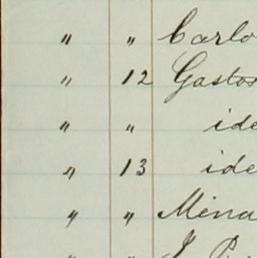 " " Carlo
" 12 Gasto
" " ide
" 13 ide
" " Mina
" "